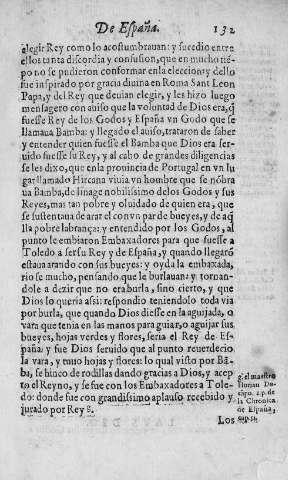 De España. 132
elegir Rey como lo acostumbrauan: y sucedio entre
ellos tanta discordia y confusion, que en mucho tiē-
po no se pudieron conformar en la eleccion: y dello
fue inspirado por gracia diuina en Roma Sant Leon
Papa, y del Rey que deuian elegir, y les hizo luego
mensagero con auiso que la voluntad de Dios era, q̃
fuesse Rey de los Godos y España vn Godo que se
llamaua Bamba: y llegado el auiso, trataron de saber
y entender quien fuesse el Bamba que Dios era ser-
uido fuesse su Rey, y al cabo de grandes diligencias
se les dixo, que en la prouincia de Portugal en vn lu
gar llamado Hircana viuia vn hombre que se nōbra
ua Bamba, de linage nobilissimo de los Godos y sus
Reyes, mas tan pobre y oluidado de quien era, que
se sustentaua de arar el con vn par de bueyes, y de aq̃
lla pobre labrança: y entendido por los Godos, al
punto le embiaron Embaxadores para que fuesse a
Toledo a ser su Rey y de España, y quando llegarō
estaua arando con sus bueyes: y oyda la embaxada,
rio se mucho, pensando que le burlauan: y tornan-
dole a dezir que no era burla, sino cierto, y que
Dios lo queria assi: respondio teniendolo toda via
por burla, que quando Dios diesse en la aguijada, o
vara que tenia en las manos para guiar, o aguijar sus
bueyes, hojas verdes y flores, seria el Rey de Es-
paña: y fue Dios seruido que al punto reuerdecio
la vara, y tuuo hojas y flores: lo qual visto por Bā-
ba, se hinco de rodillas dando gracias a Dios, y acep
to el Reyno, y se fue con los Embaxadores a Tole-
do: donde fue con grandissimo aplauso recebido y
jurado por Rey g.
g. el maestro
Iulian Del
2.p. de
la Chronica
de España,
cap. 51.
Los